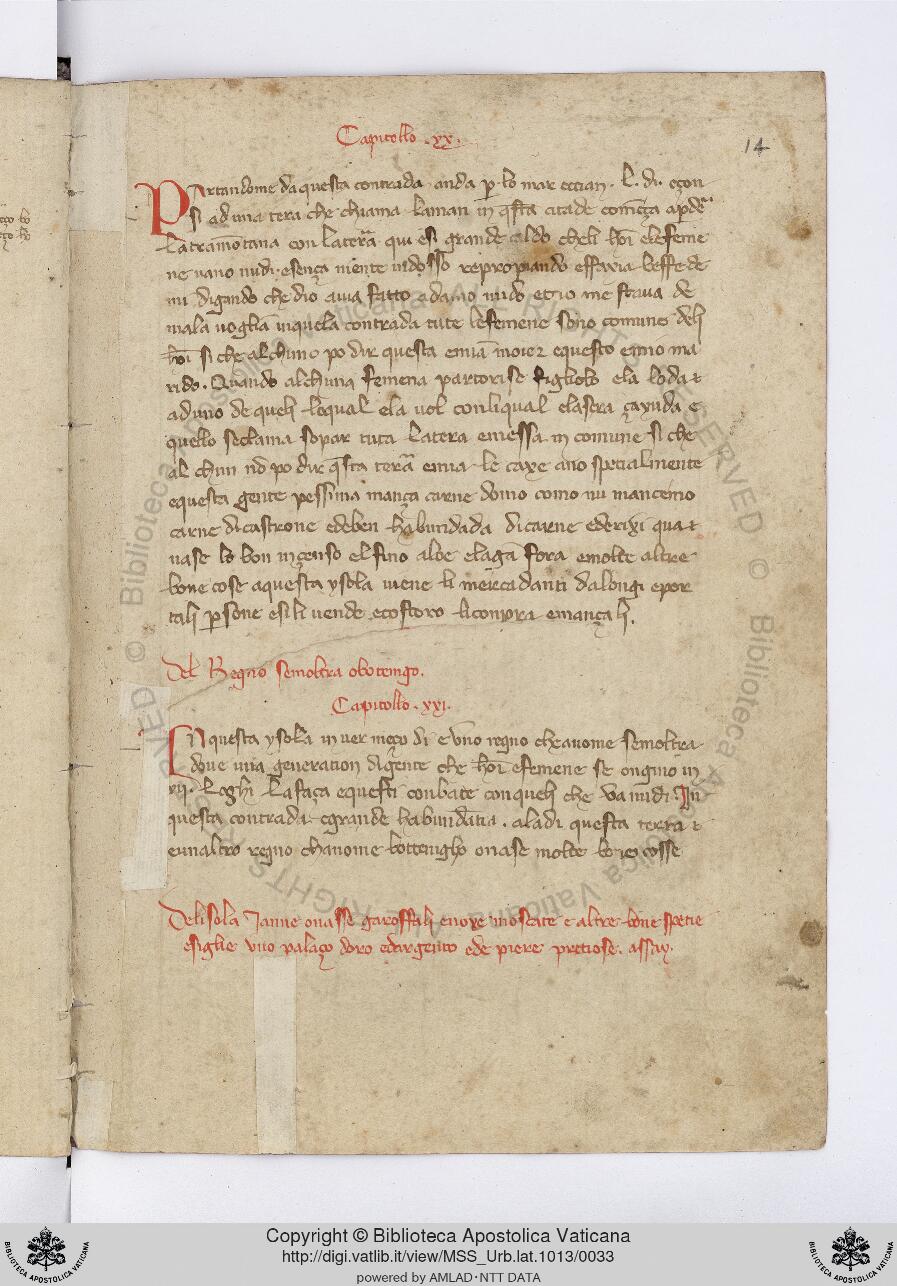 Capitollo .xx.
14
Partandome da questa contrada anda p̱ lo mar occian . L . di . e çon
si ad una tera che chiama laman in q̄sta citade comēça a p̱der
la tramōtana con la tera qui e si grande caldo cheli hoī e le feme
ne vano nudi . e sença niente indosso repropiando essaxia beffe de
mi digando che dio avia fatto adamo nudo et io me stava de
mala voglia in quela contrada tute le femene sono comune deli
hoī si che alchuno po dir questa e mia moier e questo e mio ma
rido . Quando alchuna femena partorise figliolo ela lo da
ad uno de queli loqual ela vol con li qual ela sera çaxuda e
quello se clama so par tuta la tera e messa in comune si che
al chun nō po dir q̄sta tera e mia le caxe ano spetialmente
e questa gente pessima mança carne domo como nu mancemo
carne di castrone ede ben habundada di carne ede rixi qua
nase lo bon inçenso el fino aloe e la gan fora e molte altre
bone cose a questa ysola viene li mercadanti da longi e por
tali p̱sone e sili vende . e costoro li compra e mançali .
Del Regno semoltra o botengo .
Capitollo . xxi .
In questa ysola in ver meço di e uno regno che a nome semoltra
dove una generation di gente che hoī e femene se ongino in
xii . loghi la faça e questi conbate con queli che va nudi . In
questa contrada e grande habundātia . a ladi questa terra
e un altro regno cha nome bottenigho o nase molte bone cosse
Del isola Janne o nasse garoffali e noxe moscate e altre bone spetie
e sig lie uno palaço doro e dargento e de piere pretiose . assay .
Copyright © Biblioteca Apostolica Vaticana
http://digi.vatlib.it/view/MSS_Urb.lat.1013/0033
powered by AMLAD • NTT DATA